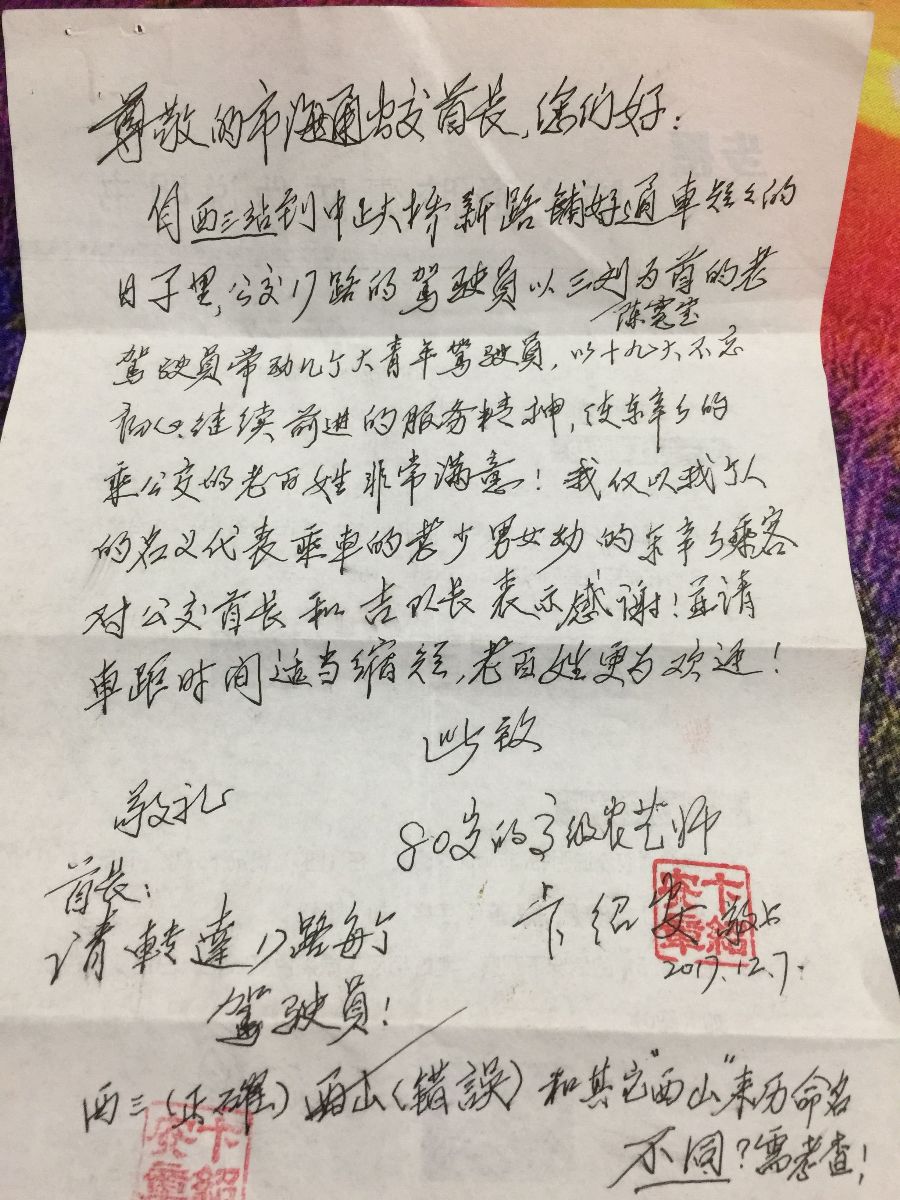 尊敬的市海通公交首长,您们好:
自西三站到中止大桥新路铺好通車短々的
日子里,公交17路的驾驶员以三刘为首的老
陈宽宝
驾驶员带动几个大青年驾驶员,以十九大不忘
初心继续前进的服务精神,使东辛乡的
乘公交的老百姓非常满意!我仅以我个人
的名义代表乘車的老少男女幼的东辛乡乘客
对公交首长和吉队长表示感谢!并请
車距时间适当缩短,老百姓更为欢迎!
此致
敬礼
80岁的高级农艺师
卞绍安 敬上
2017.12.7.
首长:
请转達17路每个
驾驶员!
西三(正確)西山(錯誤)和其它"西山"来历命名
不同?需考查!